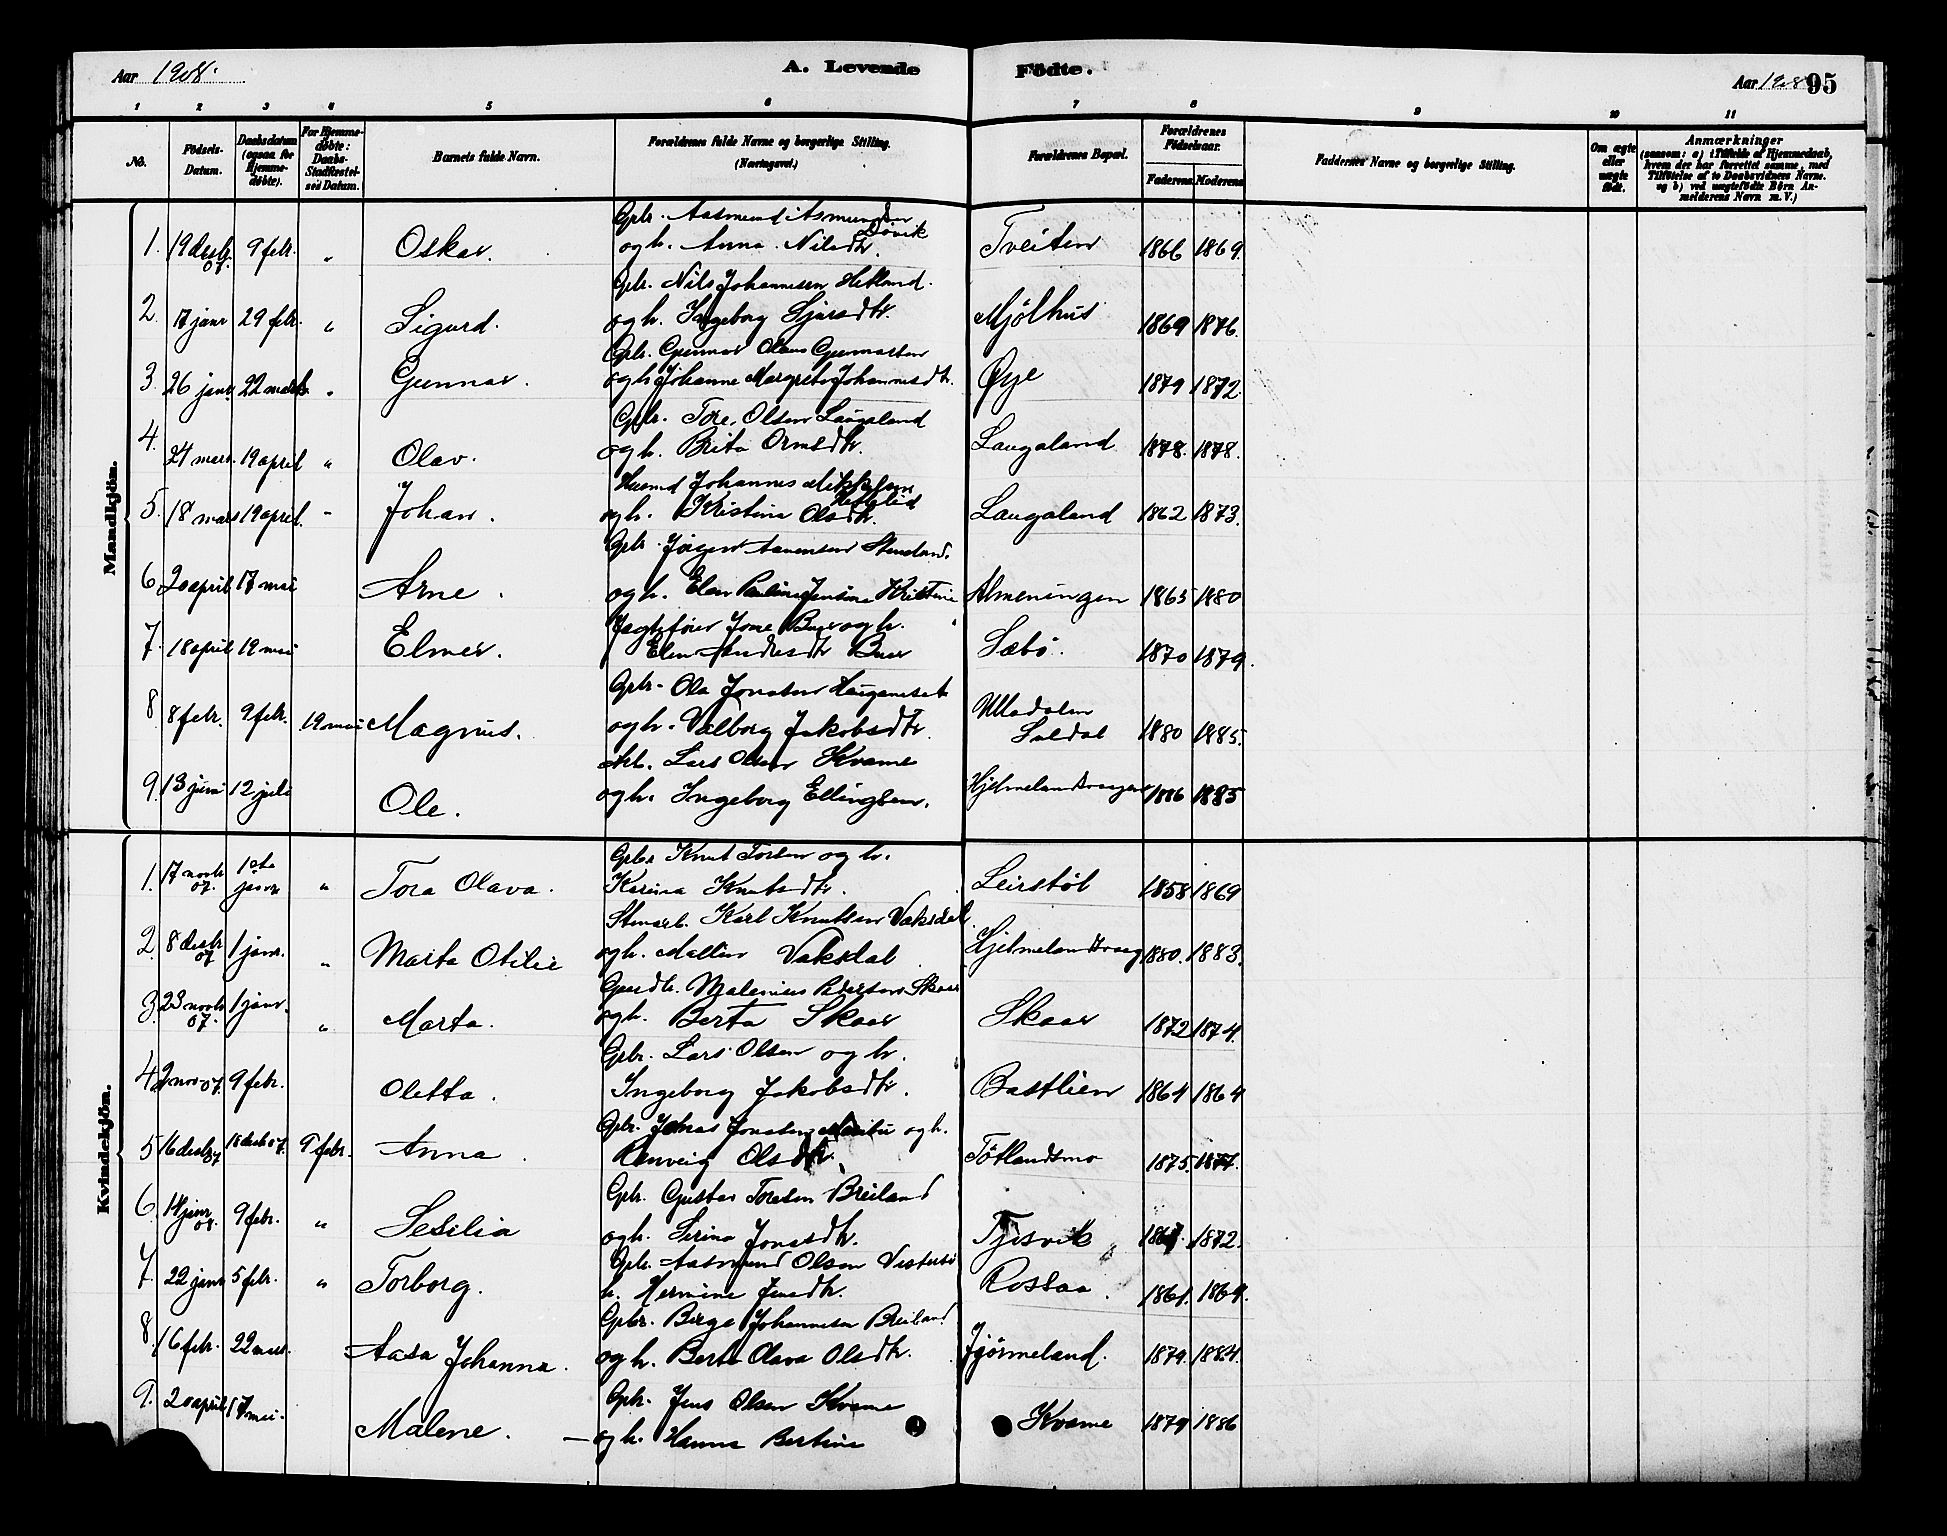 Aar 1908. A. Levende Födte. Aar 1908 95
1 2 3 4 5 6 7 8 9 10 11
No. Födsels-Datum. Daabsdatum (ogsaa for Hjemme-döbte). For Hjemme-döbte: Daabs-Stadfæstelses Datum. Barnets fulde Navn. Forældrenes fulde Navne og borgerlige Stilling. (Næringsvei.) Forældrenes Bopæl. Forældrenes Födselsaar. Faderens Moderens Faddernes Navne og borgerlige Stilling. Om ægte eller uægte födt. Anmærkninger (saasom: a) i Tilfælde af Hjemmedaab, hvem der har forrettet samme, med Tilföielse af to Daabsvidners Navne. og b) ved uægtefödte Börn Anmelderens Navn m. V.)
Mandkjön.
Gbr. Aasmund Asmundsen
1. 19 desbr 07. 9 febr. " Oskar. og h. Anna Nilsdtr. Døvik Tveiten 1866 1869.
Gbr. Nils Johannesen Hetland.
2. 17 janr 29 febr. " Sigurd. og h. Ingeborg Sjursdtr. Mjölhus 1869 1876.
Gbr. Gunnar Olaus Gunnarsen
3. 26 janr. 22 mars " Gunnar. og h. Johanne Margrete Johannesdtr. Øye 1879 1872.
Gbr. Tore Olsen Laugaland
4. 24 mars. 19 april " Olav. og h. Brita Ormsdtr. Laugaland 1878. 1878.
Husmd Johannes Mikkelsen
5. 18 mars 19 april. " Johan. og h. Kristina Olsdtr. Laugaland 1862 1873.
Gbr. Jørgen Aanensen
6. 20 april 17 mai Arne. og h. Elen Pauline Jensine Kristine Almeningen 1865 1880
7. 18 april 19 mai Elmer. Sæbö. 1870 1879.
Gbr. Ola Jonsen
8. 8 febr. 9 febr. 19 mai Magnus. og h. Valborg Jakobsdtr. Ulladalen Suldal 1880 1885.
Arb. Lars Olsen Kvame
9. 13 juni 12 juli Ole. og h. Ingeborg Ellingsen. Hjelmelandsvaagen 1886 1885
Kvindekjön.
Gbr. Knut Torsen og h.
1. 17 novbr 07. 1ste janr " Tora Olava. Karina Knutsdtr. Leirstöl 1858 1869
Stenarb. Karl Knutsen Vaksdal
2. 8 desbr 07 1 janr. " Marta Otilie og h. Mallin Vaksdal Hjelmelandsvaag 1880. 1883.
Gaardbr. Malenius Pedersen Skaar
3. 23 novbr 07. 1 janr. " Marta. og h. Berta Skaar Skaar 1872 1874.
Gbr. Lars Olsen og h.
4. 2 nov 07. 9 febr. Oletta. Ingeborg Jakobsdtr. Bastlien 1864 1864
Gbr. Jonas Jonsen og h.
5 16 desbr 07 18 desb 07. 9 febr. Anna. Ranveig Olsdtr. Tötlandsmo 1875. 1877.
Gbr. Gustav Toresen Breiland
6. 14 janr 08. 9 febr. " Sesilia og h. Serina Jonasdtr. Tysvik 1867. 1872.
Gbr. Aasmund Olsen
7. 22 janr 5 febr. " Torborg. h. Hermine Jensdtr. Rossaa. 1861. 1864.
Gbr. Børge Johannesen Breiland
8. 16 febr. 22 mars. Aasa Johanna. og h. Berta Olava Olsdtr. Fjörmeland. 1879. 1884.
Gbr. Jens Olsen Kvame
9. 20 april 17 mai. Malene. og h. Hanna Bertine Kvame 1879 1886